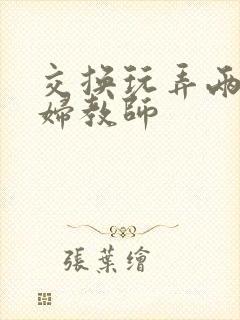 交换玩弄兩
婦教師
張葉繪